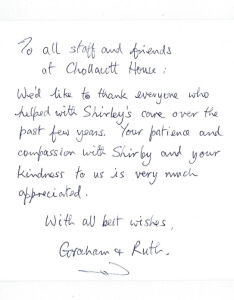 To all staff and friends
at Chollacott House:
We'd like to thank everyone who
helped with Shirley's care over the
past few years. Your patience and
compassion with Shirley and your
kindness to us is very much
appreciated.
With all best wishes,
Graham & Ruth.